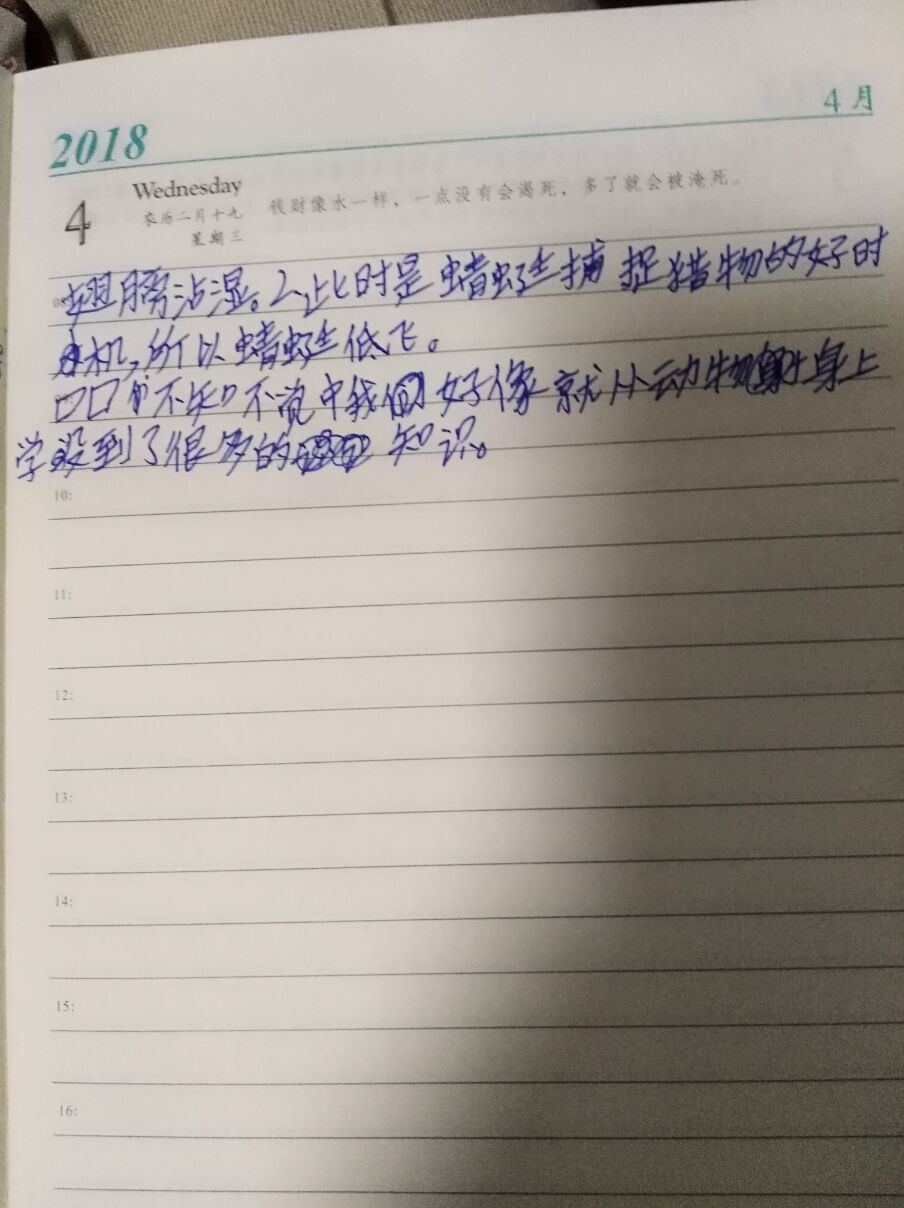 2018
4月
4
Wednesday
农历二月十九
星期三
钱财像水一样，一点没有会渴死，多了就会被淹死。
翅膀沾湿。此时是蜻蜓捕捉猎物的好时
机，所以蜻蜓低飞。
口口不知不觉中我们好像就从动物身上
学到了很多的知识。
10:
11:
12:
13:
14:
15:
16: